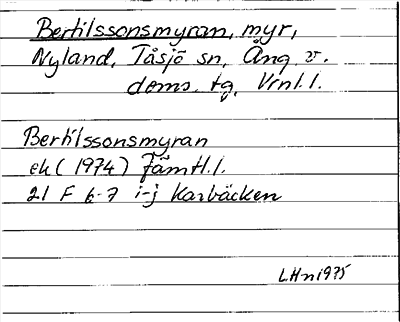 Bertilssonsmyran, myr,
Nyland, Tåsjö sn, Ång. v.
doms. tg, Vrnl. l.
Bertilssonsmyran
ek (1974) Jämtl. l.
21 F 6-7 i-j Karbäcken
L.Hn 1975